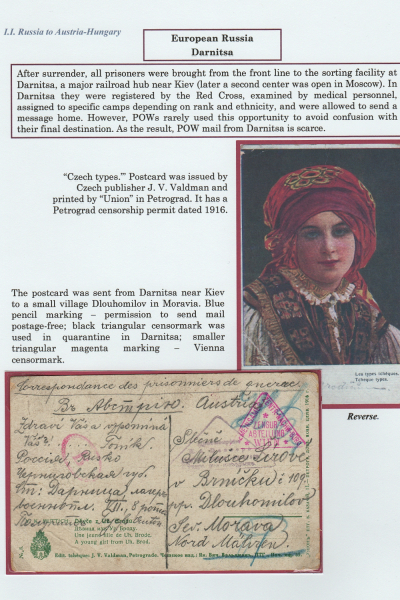 I.I. Russia to Austria-Hungary
European Russia
Darnitsa
After surrender, all prisoners were brought from the front line to the sorting facility at
Darnitsa, a major railroad hub near Kiev (later a second center was open in Moscow). In
Darnitsa they were registered by the Red Cross, examined by medical personnel,
assigned to specific camps depending on rank and ethnicity, and were allowed to send a
message home. However, POWs rarely used this opportunity to avoid confusion with
their final destination. As the result, POW mail from Darnitsa is scarce.
“Czech types.” Postcard was issued by
Czech publisher J. V. Valdman and
printed by “Union” in Petrograd. It has a
Petrograd censorship permit dated 1916.
The postcard was sent from Darnitsa near Kiev
to a small village Dlouhomilov in Moravia. Blue
pencil marking – permission to send mail
postage-free; black triangular censormark was
used in quarantine in Darnitsa; smaller
triangular magenta marking – Vienna
censormark.
Les types tchèques.
Tchèque types.
Reverse.
Correspondance des prisonniers de guerre
Въ Австрію. Austria
ZENSUR
ABTEILUNG
WIEN
Zdraví Vás a vzpomíná
Váš Toník.
Россия,
Черниговская губ.
ст: Дарница, лагерь
военнопл. III, 8 рота
Slečně
v Brníčku č 109
pp. Dlouhomilov
Sev. Morava
Nord Mähren.
Děvče z Uh. Brodu.
Une jeune fille de Uh. Brod.
A young girl from Uh. Brod.
Edit. tchèque: J. V. Valdman, Petrograde.